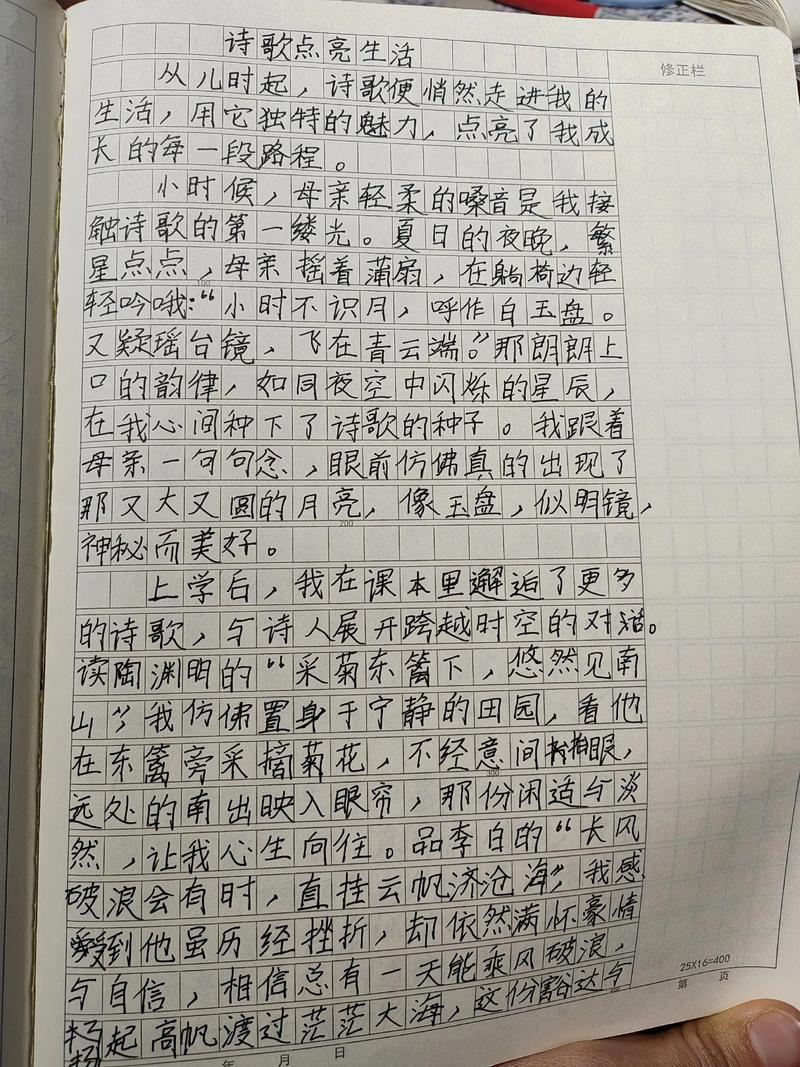 诗歌点亮生活
修正栏
从儿时起，诗歌便悄然走进我的
生活，用它独特的魅力，点亮了我成
长的每一段路程。
小时候，母亲轻柔的嗓音是我接
触诗歌的第一缕光。夏日的夜晚，繁
星点点，母亲摇着蒲扇，在躺椅边轻
100
轻吟哦：“小时不识月，呼作白玉盘。
又疑瑶台镜，飞在青云端。”那朗朗上
口的韵律，如同夜空中闪烁的星辰，
在我心间种下了诗歌的种子。我跟着
母亲一句句念，眼前仿佛真的出现了
那又大又圆的月亮，像玉盘，似明镜，
200
神秘而美好。
上学后，我在课本里邂逅了更多
的诗歌，与诗人展开跨越时空的对话。
读陶渊明的“采菊东篱下，悠然见南
山”，我仿佛置身于宁静的田园，看他
在东篱旁采摘菊花，不经意间抬眼，
300
远处的南山映入眼帘，那份闲适与淡
然，让我心生向往。品李白的“长风
破浪会有时，直挂云帆济沧海”，我感
受到他虽历经挫折，却依然满怀豪情
与自信，相信总有一天能乘风破浪，
扬起高帆渡过茫茫大海，这份豁达与
25X16=400
第 页
年 月 日